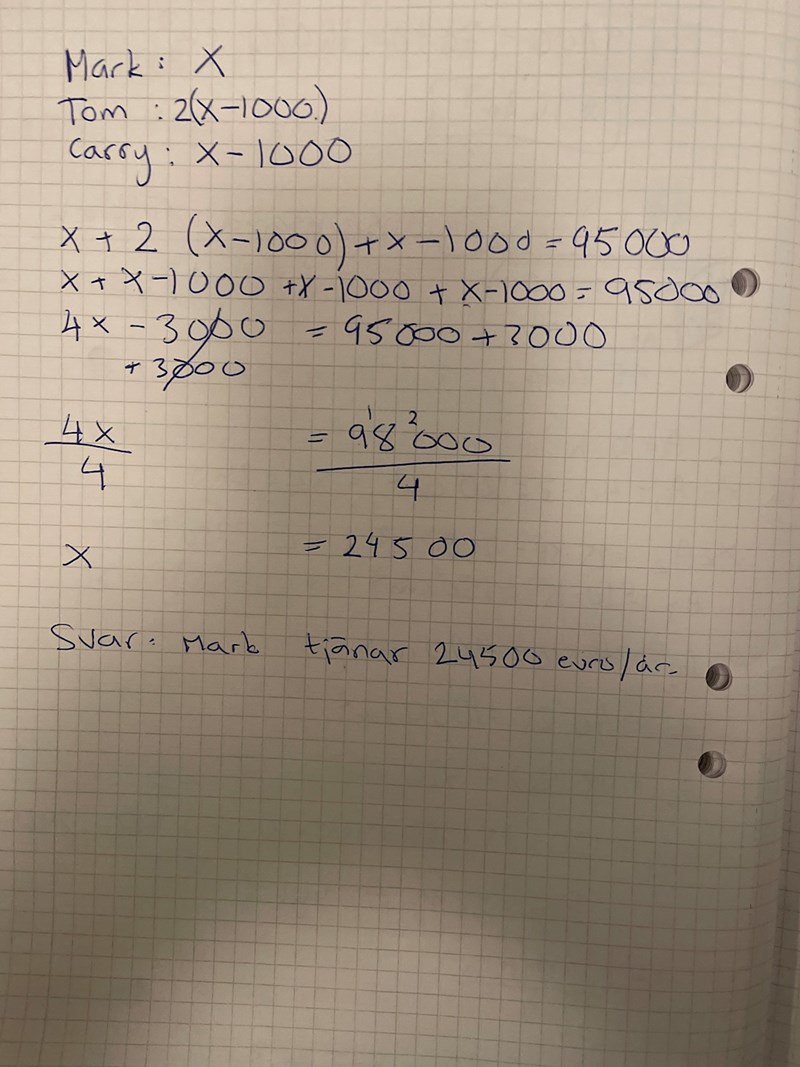 Mark: X
Tom: 2(x-1000)
Carry: x-1000
x + 2 (x-1000) + x - 1000 = 95000
x + x-1000 + x-1000 + x-1000 = 95000
4x - 3000 = 95000 + 3000
+ 3000
4x = 98000
4 4
1 2
x = 24500
Svar: Mark tjänar 24500 euro/år.